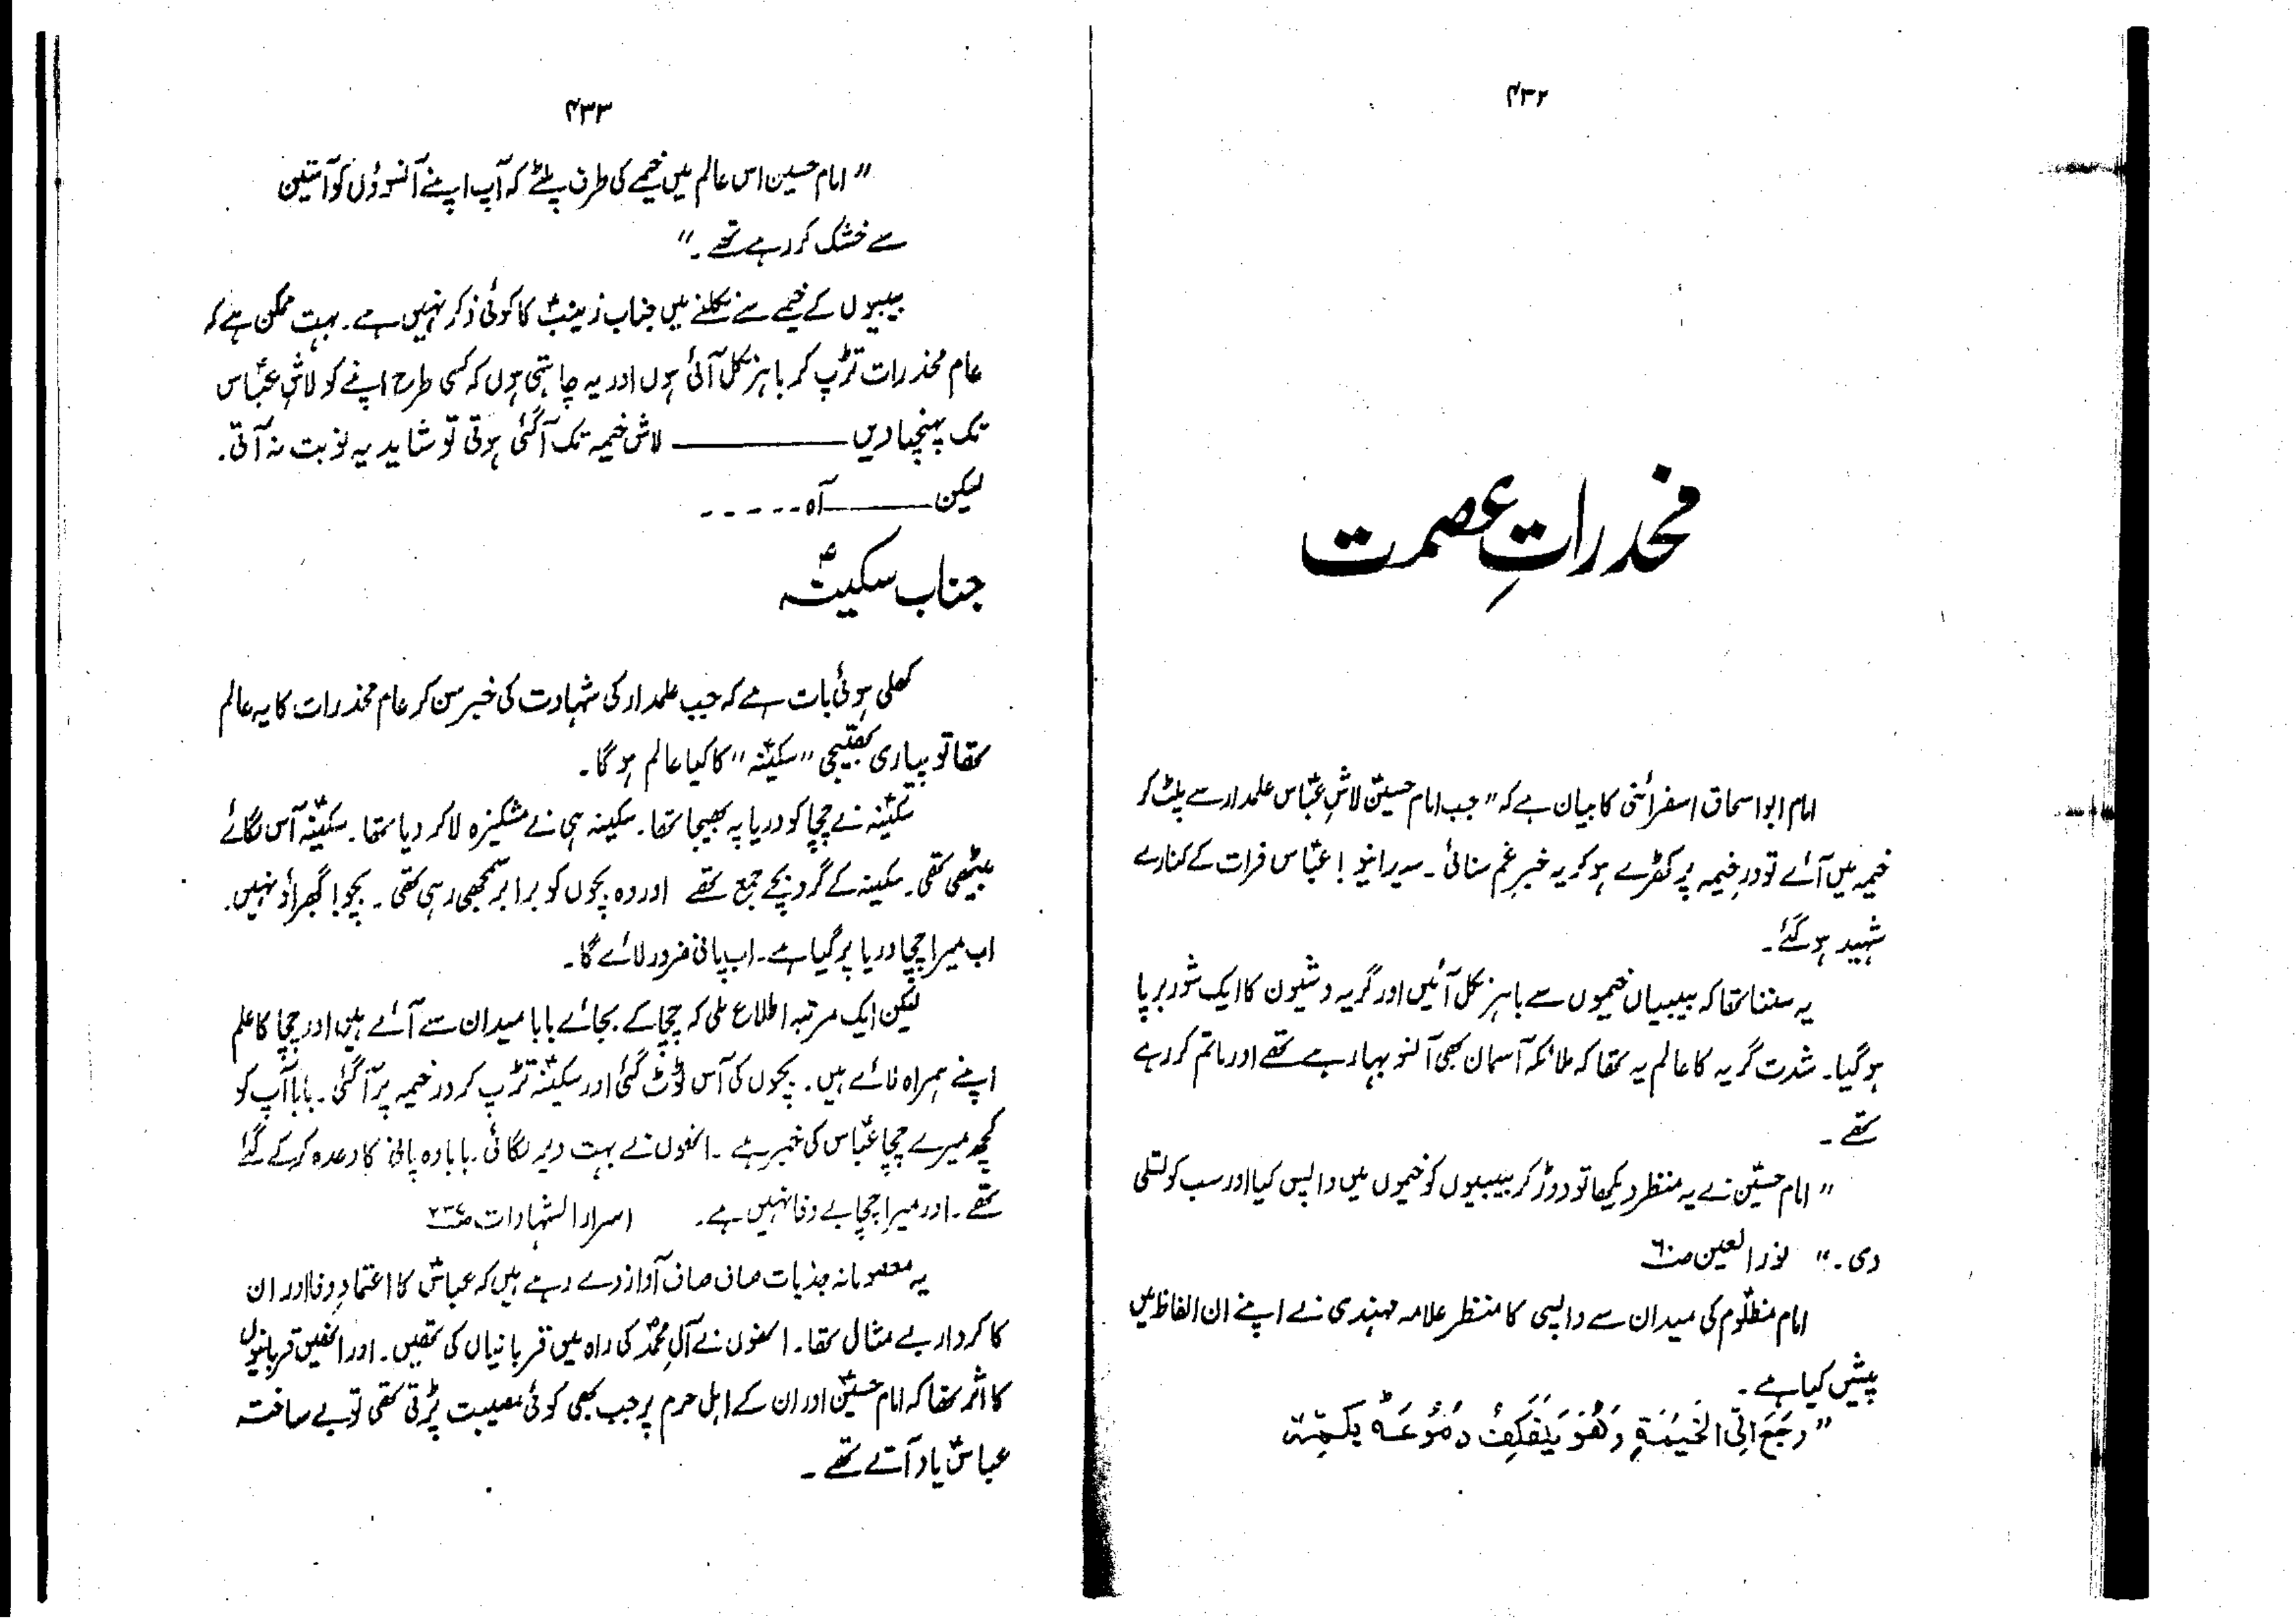 ۴۳۲
مخدراتِ عصمت
امام ابو اسحاق اسفرائنی کا بیان ہے کہ "جب امام حسینؑ لاشِ عباسؑ علمدار سے پلٹ کر
خیمہ میں آئے تو درِ خیمہ پر کھڑے ہو کر یہ خبرِ غم سنائی۔ سیدانیو! عباسؑ فرات کے کنارے
شہید ہو گئے۔
یہ سننا تھا کہ بیبیاں خیموں سے باہر نکل آئیں اور گریہ و شیون کا ایک شور برپا
ہو گیا۔ شدت گریہ کا عالم یہ تھا کہ ملائکہ آسمان بھی آنسو بہا رہے تھے اور ماتم کر رہے
تھے۔
"امام حسینؑ نے یہ منظر دیکھا تو دوڑ کر بیبیوں کو خیموں میں واپس کیا اور سب کو تسلی
دی۔" نور العین صـ۶۰
امام مظلومؑ کی میدان سے واپسی کا منظر علامہ مہندی نے اپنے ان الفاظ میں
پیش کیا ہے۔
"رَجَعَ اِلَی الْخَیْمَۃِ وَھُوَ یَنْفَکِفُ دُمُوْعَہٗ بِکُمِّہٖ
۴۳۳
"امام حسین اس عالم میں خیمے کی طرف پلٹے کہ آپ اپنے آنسوؤں کو آستین
سے خشک کر رہے تھے۔"
بیبیوں کے خیمے سے نکلنے میں جناب زینبؑ کا کوئی ذکر نہیں ہے۔ بہت ممکن ہے کہ
عام مخدرات تڑپ کر باہر نکل آئی ہوں اور یہ چاہتی ہوں کہ کسی طرح اپنے کو لاشِ عباسؑ
تک پہنچا دیں ــــــــــ لاش خیمہ تک آ گئی ہوتی تو شاید یہ نوبت نہ آتی۔
لیکن ــــــــ آہ -----
جناب سکینہؑ
کھلی ہوئی بات ہے کہ جب علمدار کی شہادت کی خبر سن کر عام مخدرات کا یہ عالم
تھا تو پیاری بھتیجی "سکینہؑ" کا کیا عالم ہو گا۔
سکینہؑ نے چچا کو دریا پہ بھیجا تھا۔ سکینہ ہی نے مشکیزہ لا کر دیا تھا۔ سکینہؑ آس لگائے
بیٹھی تھی۔ سکینہ کے گرد بچے جمع تھے اور وہ بچوں کو برابر سمجھی رہی تھی۔ بچو! گھبراؤ نہیں۔
اب میرا چچا دریا پر گیا ہے۔ اب پانی ضرور لائے گا۔
لیکن ایک مرتبہ اطلاع ملی کہ چچا کے بجائے بابا میدان سے آئے ہیں اور چچا کا علم
اپنے ہمراہ لائے ہیں۔ بچوں کی آس ٹوٹ گئی اور سکینہؑ تڑپ کر درِ خیمہ پر آ گئی۔ بابا آپ کو
کچھ میرے چچا عباسؑ کی خبر ہے۔ انھوں نے بہت دیر لگائی۔ بابا وہ پانی کا وعدہ کر کے گئے
تھے۔ اور میرا چچا بے وفا نہیں ہے۔ اسرار الشہادات صـ۲۳۷
یہ معصومانہ جذبات صاف صاف آواز دے رہے ہیں کہ عباسؑ کا اعتمادِ وفا اور ان
کا کردار بے مثال تھا۔ انھوں نے آلِ محمدؐ کی راہ میں قربانیاں کی تھیں۔ اور انھیں قربانیوں
کا اثر تھا کہ امام حسینؑ اور ان کے اہل حرم پر جب بھی کوئی مصیبت پڑتی تھی تو بے ساختہ
عباسؑ یاد آتے تھے۔